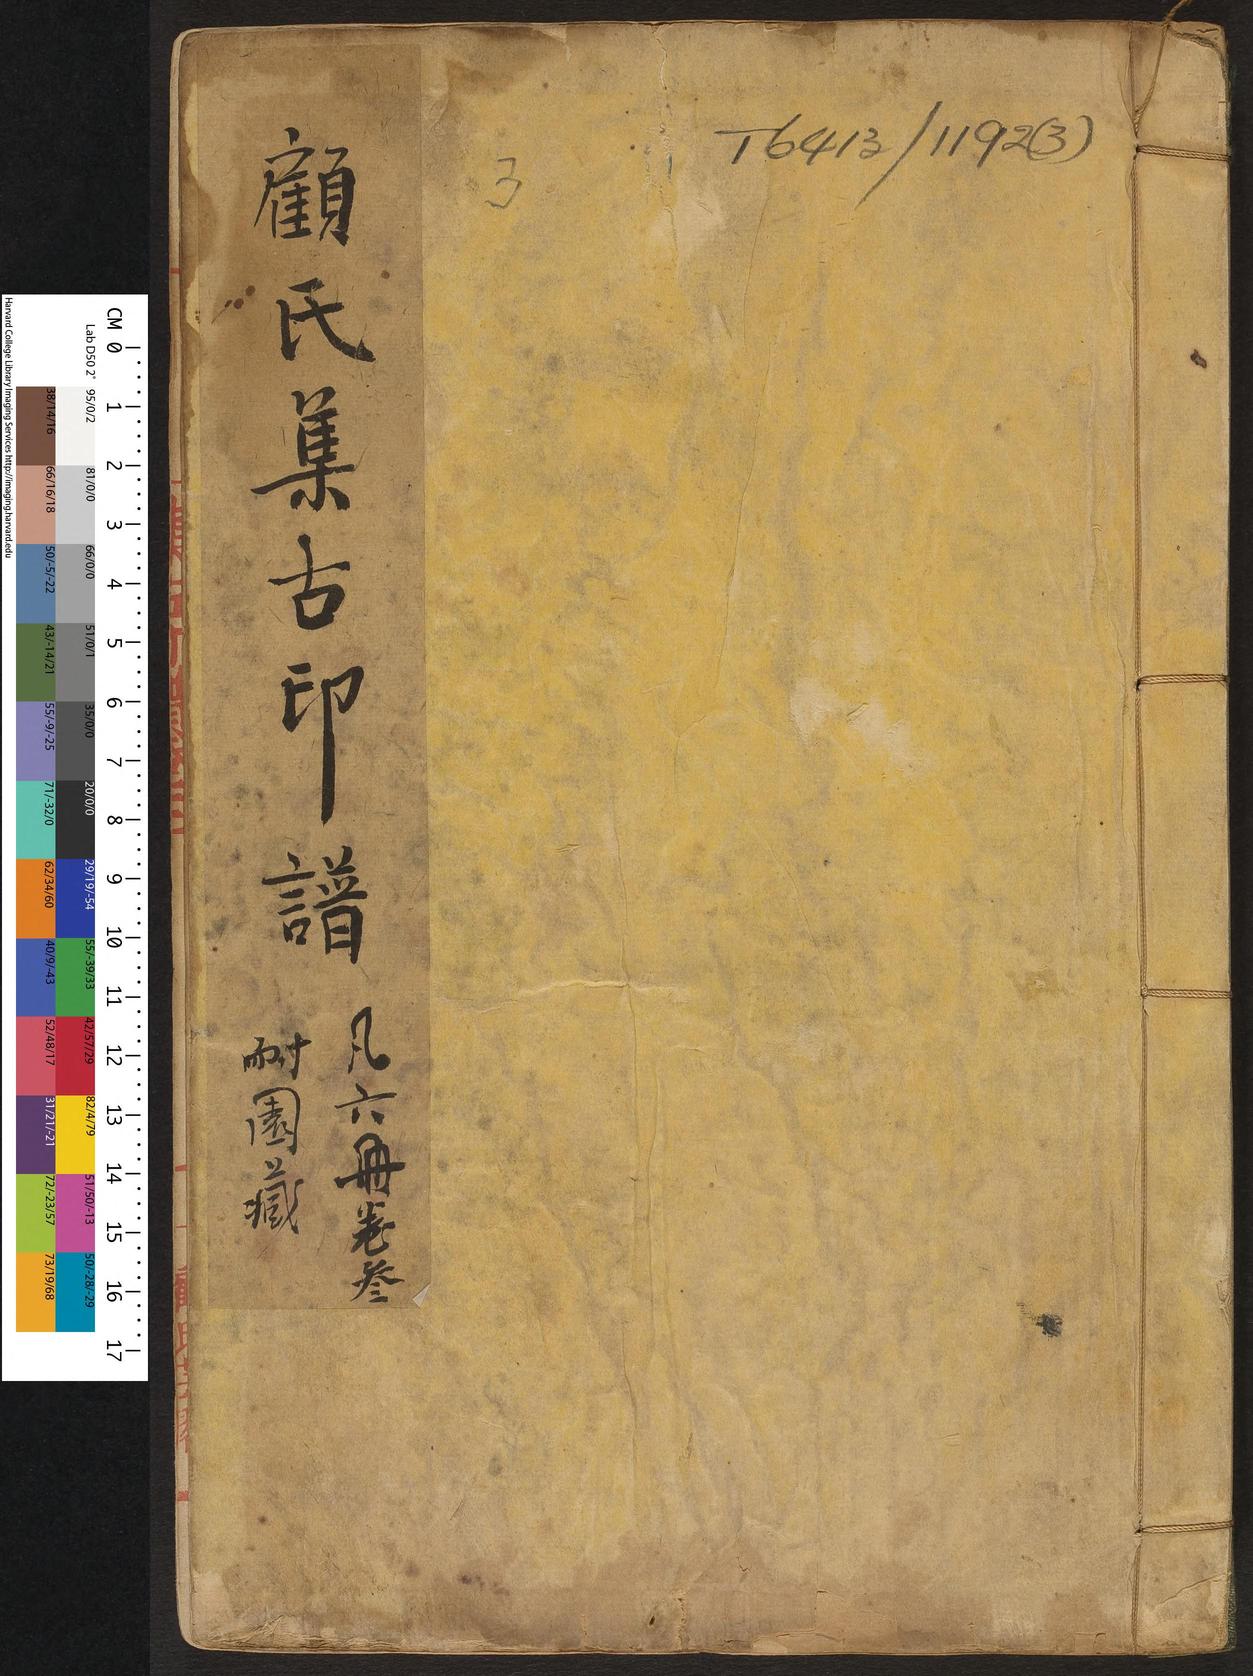 T6413/1192(3)
3
顧氏集古印譜
凡六冊卷叄
耐園藏
CM 0 1 2 3 4 5 6 7 8 9 10 11 12 13 14 15 16 17
Lab D50 2° 95/0/2 81/0/0 66/0/0 51/0/1 35/0/0 20/0/0 29/19/-54 55/-39/33 42/57/29 82/4/79 51/50/-13 50/-28/-29
38/14/16 66/16/18 50/-5/-22 43/-14/21 55/-9/-25 71/-32/0 62/34/60 40/9/-43 52/48/17 31/21/-21 72/-23/57 73/19/68
Harvard College Library Imaging Services http://imaging.harvard.edu